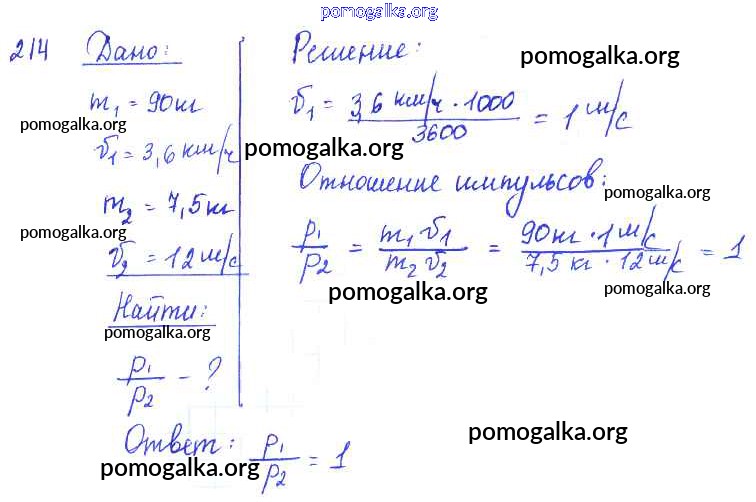 pomogalka.org
214 Дано:
m₁ = 90 кг
pomogalka.org
υ₁ = 3,6 км/ч
m₂ = 7,5 кг
pomogalka.org
υ₂ = 12 м/с
Найти:
pomogalka.org
p₁/p₂ - ?
Решение:
pomogalka.org
υ₁ = 3,6 км/ч · 1000 / 3600 = 1 м/с
pomogalka.org
Отношение импульсов:
pomogalka.org
p₁/p₂ = m₁υ₁/m₂υ₂ = 90 кг · 1 м/с / 7,5 кг · 12 м/с = 1
pomogalka.org
pomogalka.org
Ответ: p₁/p₂ = 1
pomogalka.org
pomogalka.org